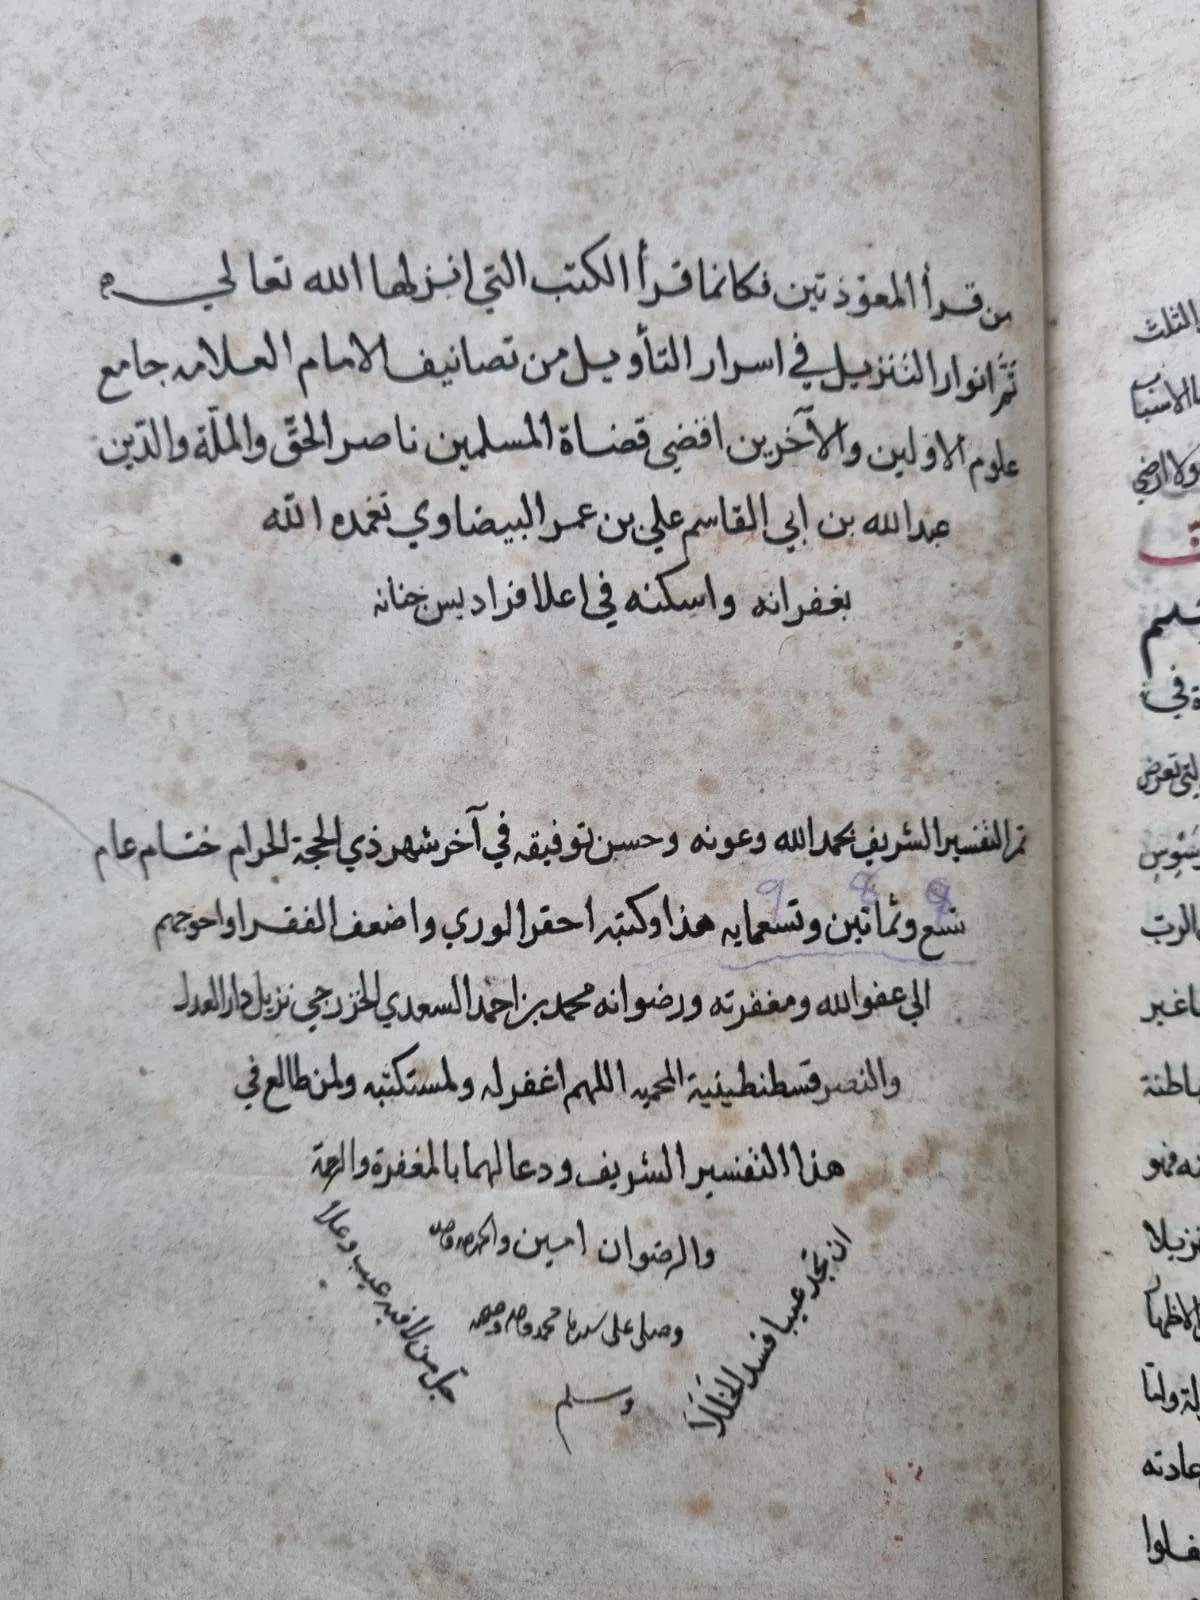 من قرأ المعوّذتين فكانما قرأ الكتب التي انزلها الله تعالي
تَمَّ انوار التنزيل في اسرار التأويل من تصانيف الامام العلامه جامع
علوم الاولين والآخرين اقضي قضاة المسلمين ناصر الحقّ والملّة والدّين
عبد الله بن ابي القاسم علي بن عمر البيضاوي تغمده الله
بغفرانه واسكنه في اعلا فراديس جنانه
تم التفسير الشريف بحمد الله وعونه وحسن توفيقه في آخر شهر ذي الحجة الحرام ختام عام
9 8 9
تسع وثمانين وتسعمايه هذا وكتبه احقر الوري واضعف الفقرا واحوجهم
الي عفو الله ومغفرته ورضوانه محمد بن احمد السعدي الخزرجي نزيل دار العدل
والنصر قسطنطينية المحميه اللهم اغفر له ولمستكتبه ولمن طالع في
هذا التفسير الشريف ودعا لهما بالمغفرة والرحمة
والرضوان امين والحمد لله وحده
وصلى على سيدنا محمد واله وصحبه
وسلم
ان تجد عيبا فسد الخللا
جلّ من لا فيه عيب وعلا
الثلث
ولا ارضي
في
باطنة
نزيلا
عادته